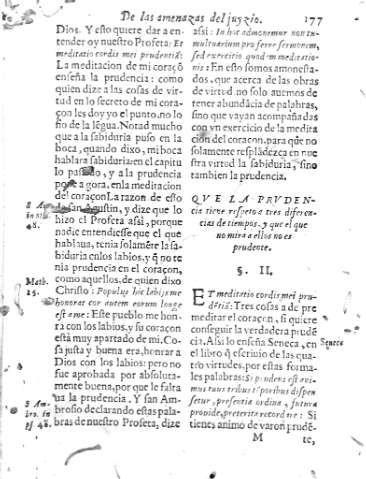 De las amenazas del juyzio. 177
Dios. Y esto quiere dar a en-
tender oy nuestro Profeta: Et
meditatio cordis mei prudentiã.
La meditacion de mi coraçõ
enseña la prudencia: como
quien dize a las cosas de vir-
tud en lo secreto de mi cora-
çon les doy yo el punto, no lo
fio de la lẽgua. Notad mucho
que a la sabiduria puso en la
boca, quando dixo, mi boca
hablara sabiduria: en el capitu
lo passado, y a la prudencia
pone agora, en la meditacion
del coraçon La razon de esto
da san Agustin, y dize que lo
hizo el Profeta assi, porque
nadie entendiesse que el que
hablaua, tenia solamẽte la sa-
biduria enlos labios, y q̃ no te
nia prudencia en el coraçon,
como aquellos, de quien dixo
Christo: Populus hic labijs me
honorat cor autem eorum longe
est a me: Este pueblo me hon-
ra con los labios, y su coraçon
está muy apartado de mi. Co-
sa justa y buena era, honrar a
Dios con los labios: pero no
fue aprobada por absoluta-
mente buena, por que le falta
ua la prudencia. Y san Am-
brosio declarando estas pala-
bras de nuestro Profeta, dize
S Au
in
48.
Math.
15.
S Am-
bro. in
ps 48.
assi: In hoc admonemur non tu-
multuarium proferre sermonem,
sed exercitio quodam meditatio-
nis: En esto somos amonesta-
dos, que acerca de las obras
de virtud. no solo auemos de
tener abundãcia de palabras,
sino que vayan acompañadas
con vn exercicio de la medita
cion del coraçon, para que no
solamente resplãdezca en nue
stra virtud la sabiduria, sino
tambien la prudencia.
QVE LA PRVDEN-
cia tiene respeto a tres diferen-
cias de tiempos, y que el que
no mira a ellos no es
prudente.
§. II.
ET meditatio cordis mei pru-
dẽtiã: Tres cosas a de pre
meditar el coraçon, si quiere
conseguir la verdadera prudẽ
cia. Assi lo enseña Seneca, en
el libro q̃ escriuio de las qua-
tro virtudes, por estas forma-
les palabras: Si prudens est ani-
mus tuus tribus tẽporibus dispen
setur, præsentia ordina, futura
prouide, præterita recordare: Si
tienes animo de varon prudẽ-
Seneca
M te,